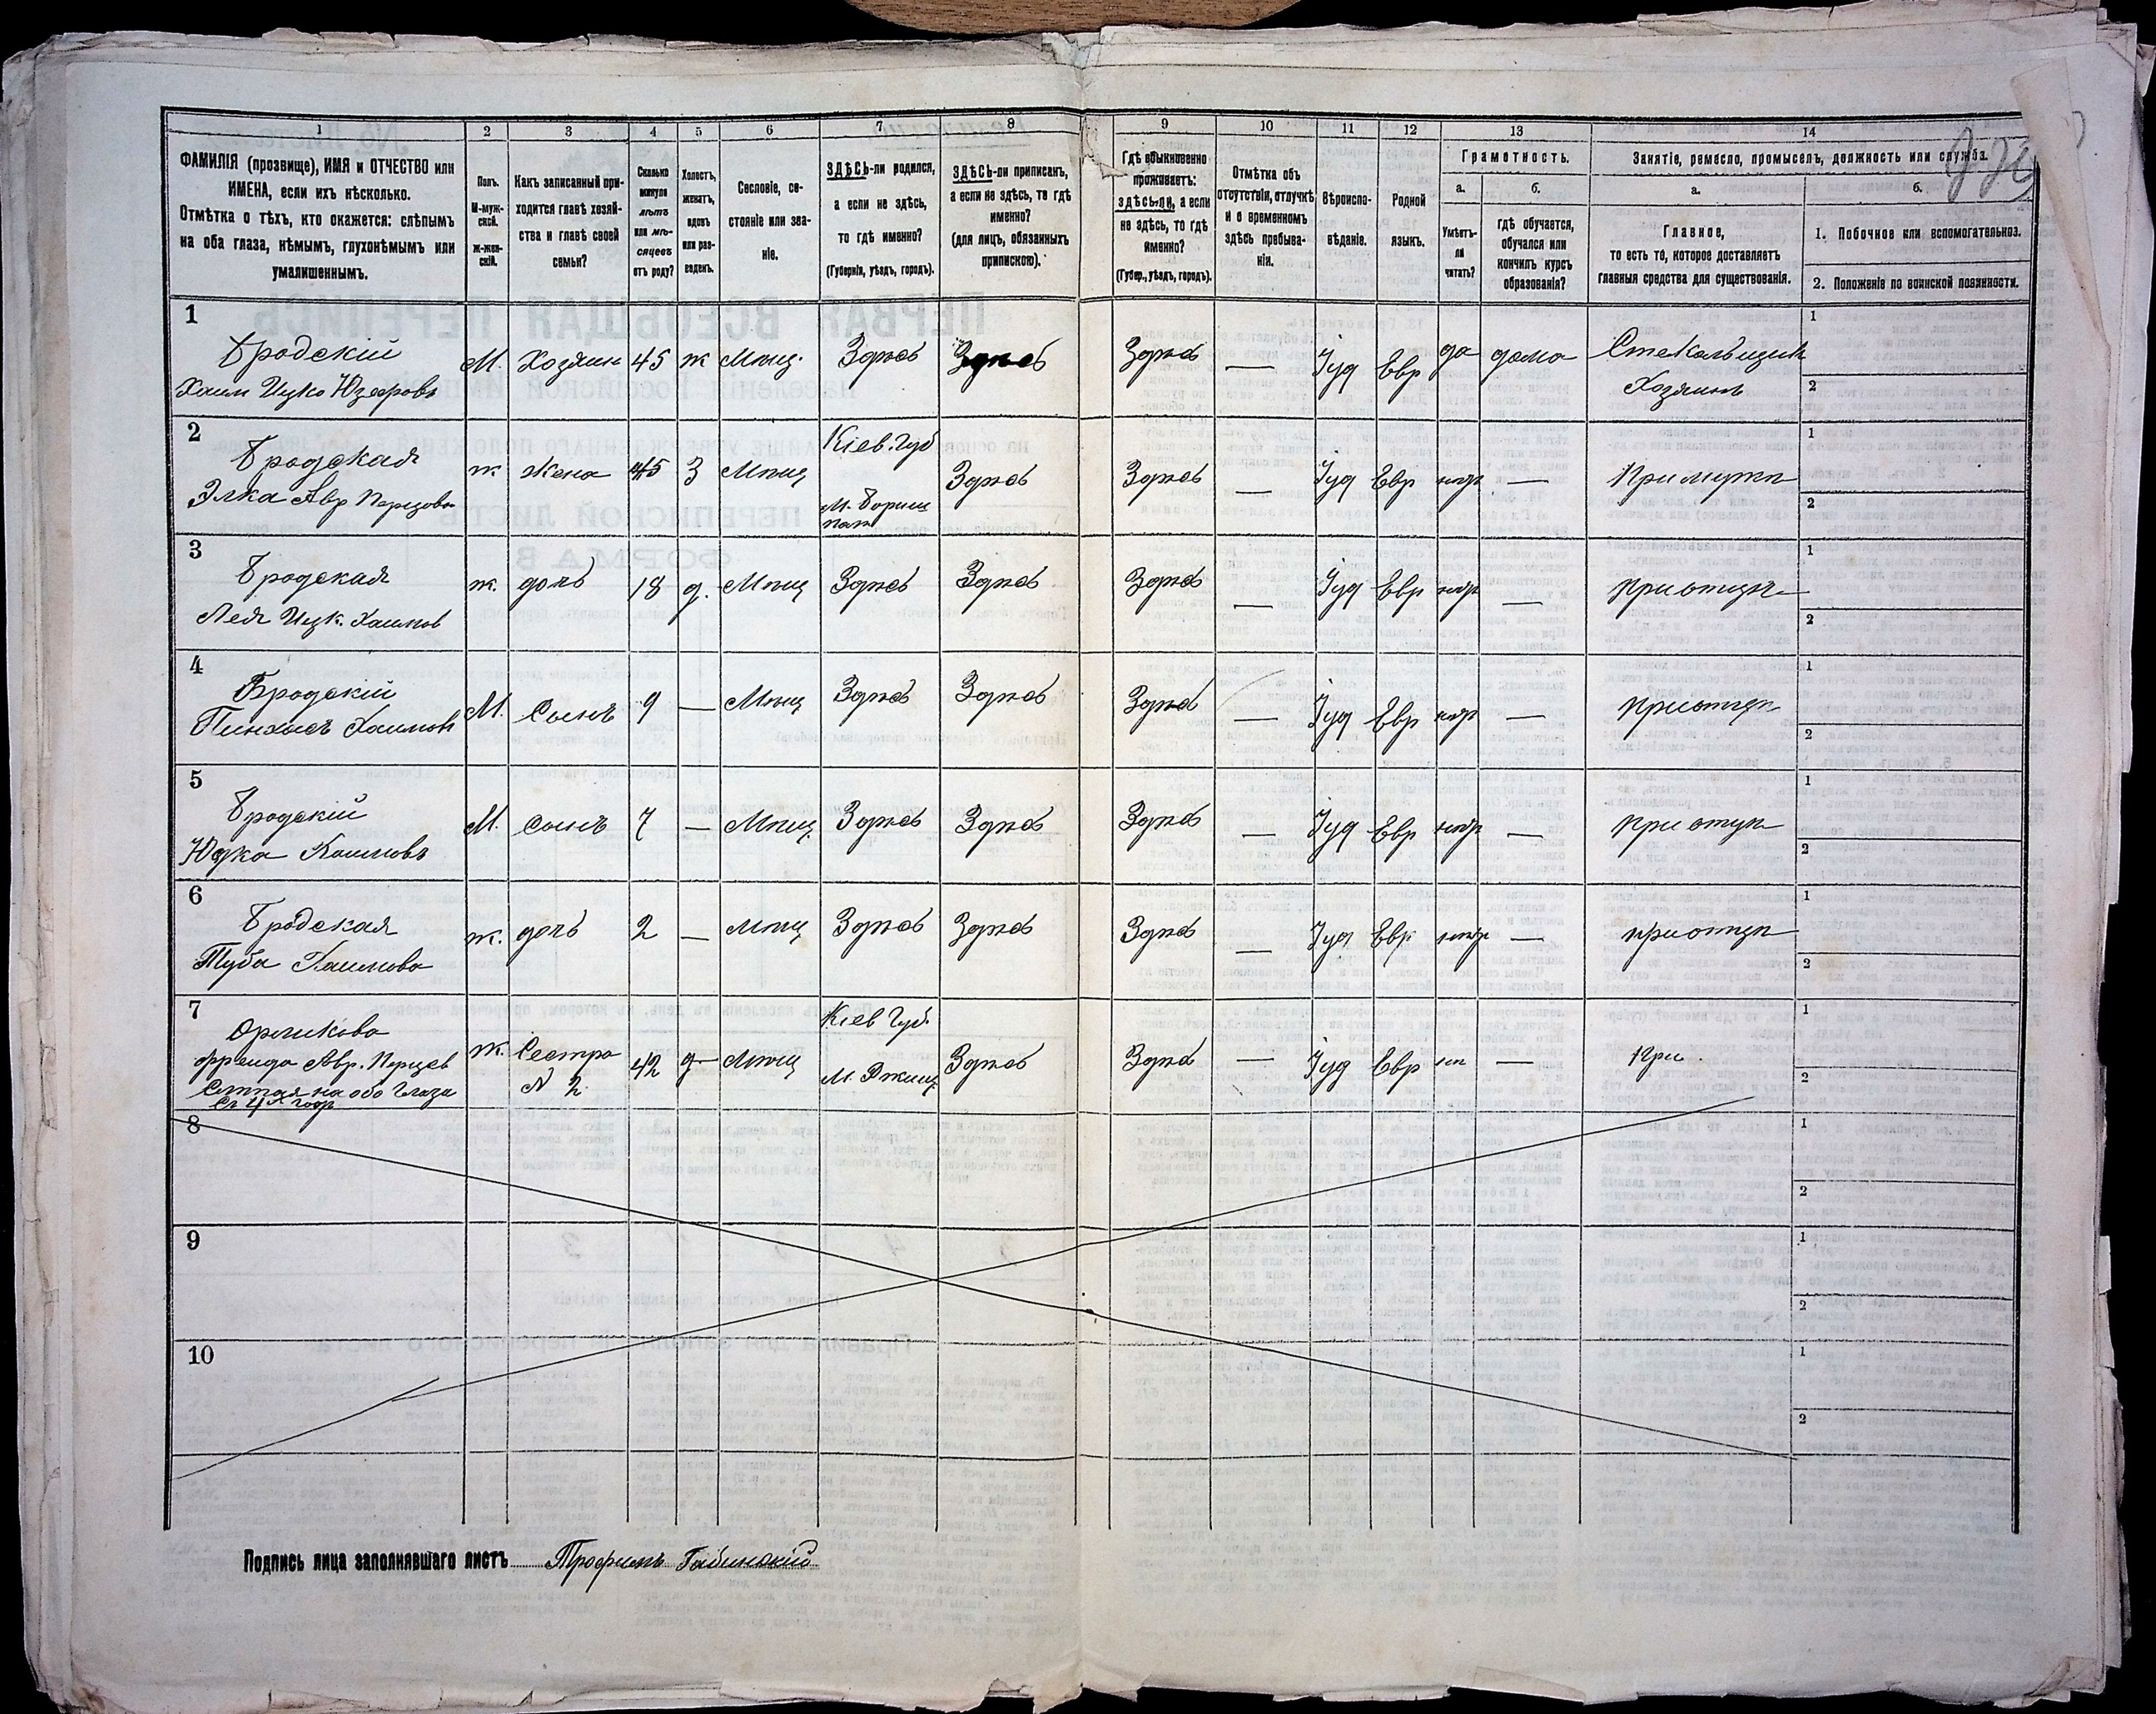 1 2 3 4 5 6 7 8 9 10 11 12 13 14
ФАМИЛІЯ (прозвище), ИМЯ и ОТЧЕСТВО или
ИМЕНА, если ихъ нѣсколько.
Отмѣтка о тѣхъ, кто окажется: слѣпымъ
на оба глаза, нѣмымъ, глухонѣмымъ или
умалишеннымъ.
Полъ.
М-муж-
ской.
Ж-жен-
скій.
Какъ записанный при-
ходится главѣ хозяй-
ства и главѣ своей
семьи?
Сколько
минуло
лѣтъ
или мѣ-
сяцевъ
отъ роду?
Холостъ,
женатъ,
вдовъ
или раз-
веденъ.
Сословіе, со-
стояніе или зва-
ніе.
ЗДѢСЬ-ли родился,
а если не здѣсь,
то гдѣ именно?
(Губернія, уѣздъ, городъ).
ЗДѢСЬ-ли приписанъ,
а если не здѣсь, то гдѣ
именно?
(для лицъ, обязанныхъ
припискою).
Гдѣ обыкновенно
проживаетъ:
здѣсь-ли, а если
не здѣсь, то гдѣ
именно?
(Губер., уѣздъ, городъ).
Отмѣтка объ
отсутствіи, отлучкѣ
и о временномъ
здѣсь пребыва-
ніи.
Вѣроиспо-
вѣданіе.
Родной
языкъ.
Грамотность.
а.
Умѣетъ-
ли
читать?
б.
гдѣ обучается,
обучался или
кончилъ курсъ
образованія?
Занятіе, ремесло, промыселъ, должность или служба.
а.
Главное,
то есть то, которое доставляетъ
главныя средства для существованія.
б.
1. Побочное или вспомогательное.
2. Положеніе по воинской повинности.
1
Бродскій
Хаим Ицко Юзефовъ
М. Хозяин 45 ж Мѣщ. Здѣсь Здѣсь Здѣсь — Іуд Евр да дома Стекольщикъ
Хозяинъ
1
2
2
Бродская
Элка Авр Перцова
ж Жена 45 З Мѣщ
Кіев. Губ
Здѣсь Здѣсь — Іуд Евр нѣтъ — При мужѣ
1
2
3
Бродская
Лея Ицк. Хаимов
ж. дочь 18 д. Мѣщ Здѣсь Здѣсь Здѣсь — Іуд Евр нѣтъ — при отцѣ
1
2
4
Бродскій
Пинхысъ Хаимов
М. Сынъ 9 — Мѣщ Здѣсь Здѣсь Здѣсь — Іуд Евр нѣтъ — при отцѣ
1
2
5
Бродскій
Юдка Хаимовъ
М. Сынъ 7 — Мѣщ Здѣсь Здѣсь Здѣсь — Іуд Евр нѣтъ — при отцѣ
1
2
6
Бродская
Туба Хаимова
ж. дочь 2 — Мѣщ Здѣсь Здѣсь Здѣсь — Іуд Евр нѣтъ — при отцѣ
1
2
7
Фрейда Авр. Перцов
Слѣпая на оба глаза
Съ 4х год
ж. Сестра
N 2
42 д — Мѣщ
Кіев Губ.
М. Ржищ
Здѣсь Здѣсь — Іуд Евр — При
1
2
8
1
2
9
1
2
10
1
2
Подпись лица заполнявшаго листъ Трофимъ Габинскій